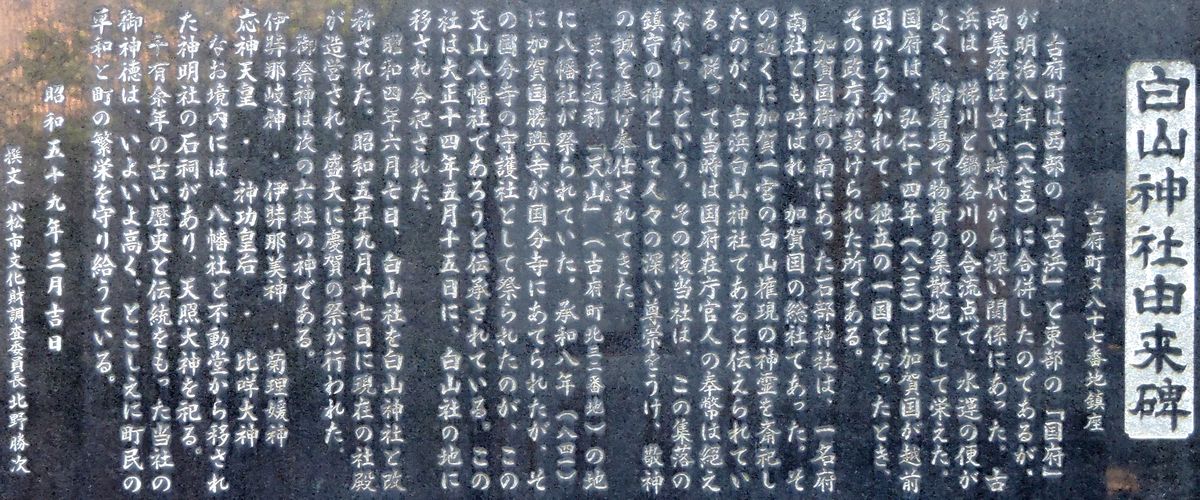 白山神社由来碑
古府町ヌ八十七番地鎮座
古府町は西部の「古浜」と東部の「国府」
が明治八年(一八七五)に合併したのであるが、
両集落は古い時代から深い関係にあった。古
浜は、梯川と鍋谷川の合流点で、水運の便が
よく、船着場で物資の集散地として栄えた。
国府は、弘仁十四年(八二三)に加賀国が越前
国から分かれて、独立の一国となったとき、
その政庁が設けられた所である。
加賀国衙の南にあった石部神社は、一名府
南社とも呼ばれ、加賀国の総社であった。そ
の近くに加賀一宮の白山権現の神霊を斎祀し
たのが、古浜白山神社であると伝えられてい
る。従って当時は国府在庁官人の奉幣は絶え
なかったという。その後当社は、この集落の
鎮守の神として人々の深い尊崇をうけ、敬神
の誠を捧げ奉仕されてきた。
また通称「天山」(古府町北三一番地)の地
に八幡社が祭られていた。承和八年(八四一)
に加賀国勝興寺が国分寺にあてられたが、そ
の国分寺の守護社として祭られたのが、この
天山八幡社であろうと伝承されている。この
社は大正十四年五月十五日に、白山社の地に
移され合祀された。
昭和四年六月七日、白山社を白山神社と改
称された。昭和五年九月十七日に現在の社殿
が造営され、盛大に慶賀の祭が行われた。
御祭神は次の六柱の神である。
伊弉那岐神・伊弉那美神・菊理媛神
応神天皇・神功皇后・比咩大神
なお境内には、八幡社と不動堂から移され
た神明社の石祠があり、天照大神を祀る。
千有余年の古い歴史と伝統をもった当社の
御神徳は、いよいよ高く、とこしえに町民の
平和と町の繁栄を守り給うている。
昭和五十九年三月吉日
撰文 小松市文化財調査委員長 北野勝次